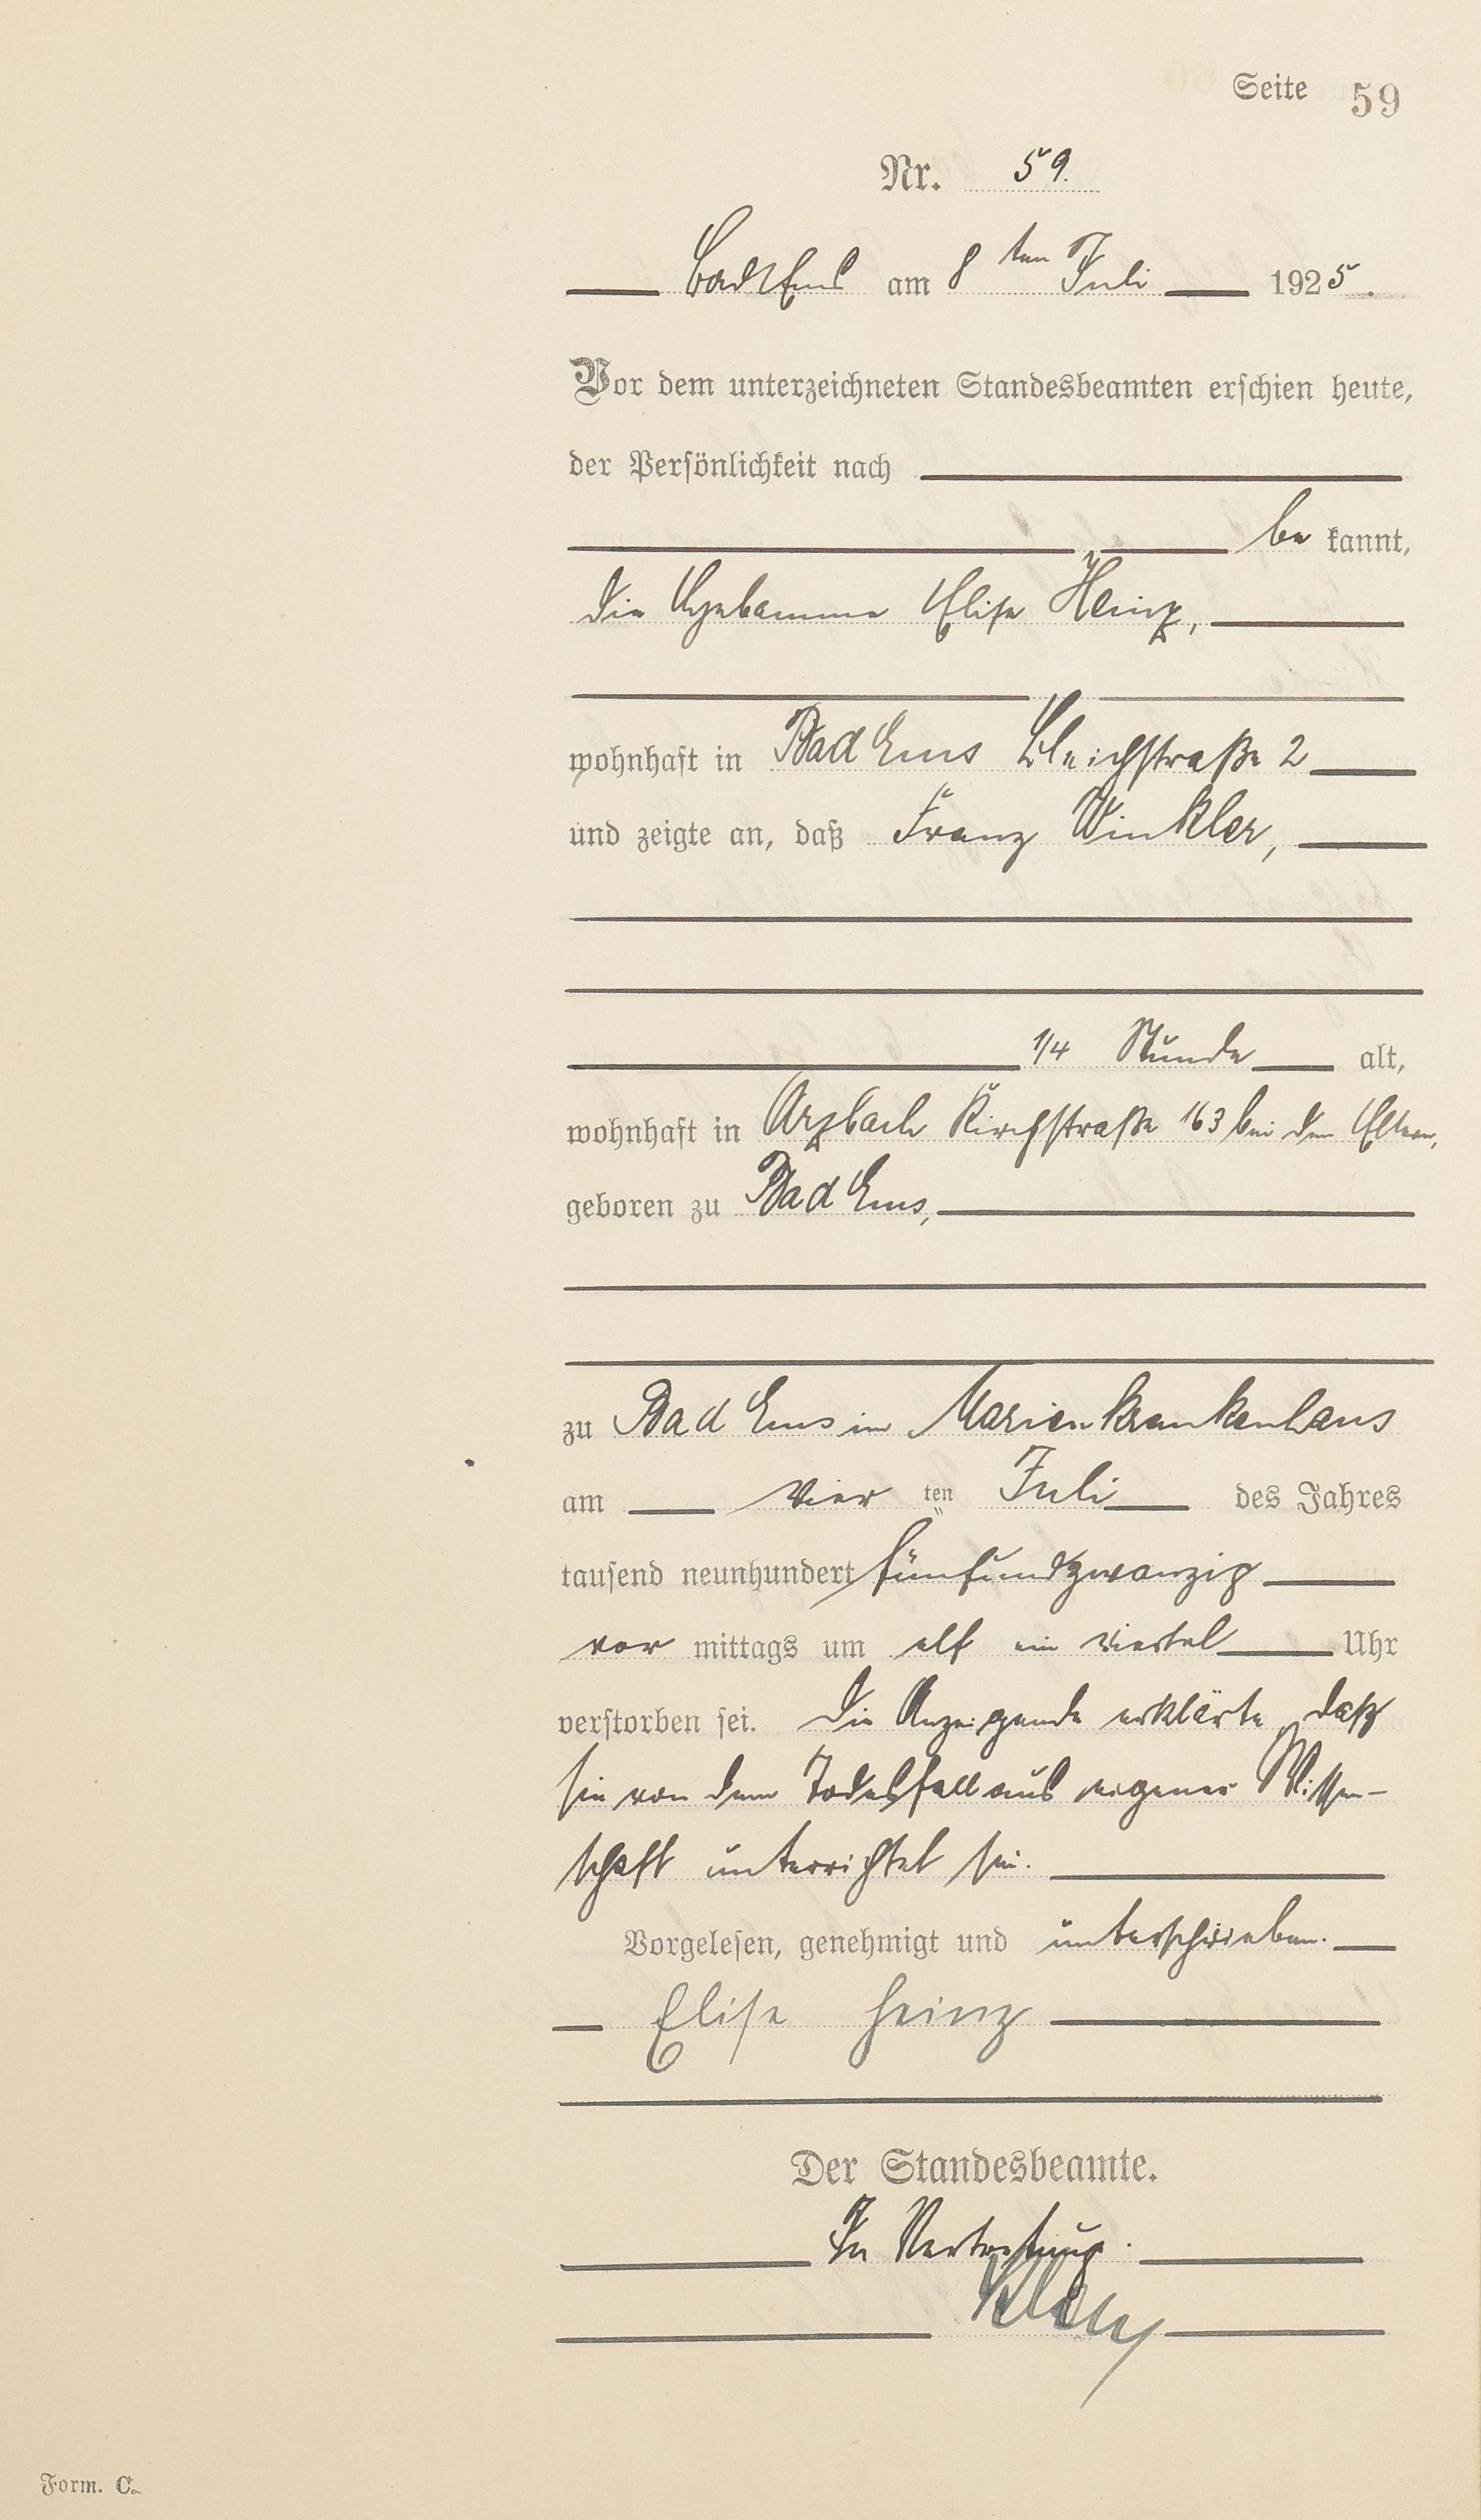 Seite 59
Nr. 59.
Bad Ems am 8ten Juli 1925.
Vor dem unterzeichneten Standesbeamten erschien heute,
der Persönlichkeit nach
be kannt,
die Hebamme Elise Heinz,
wohnhaft in Bad Ems Bleichstraße 2
und zeigte an, daß Franz Winkler,
1/4 Stunde alt,
wohnhaft in Arzbach Kirchstraße 163 bei den Eltern,
geboren zu Bad Ems,
zu Bad Ems im Marienkrankenhaus
am vier ten Juli des Jahres
tausend neunhundert fünfundzwanzig
vor mittags um elf ein viertel Uhr
verstorben sei. Die Anzeigende erklärte, daß
sie von dem Todesfall aus eigener Wissen-
schaft unterrichtet sei.
Vorgelesen, genehmigt und unterschrieben.
Elise Heinz
Der Standesbeamte.
In Vertretung.
Form. C.